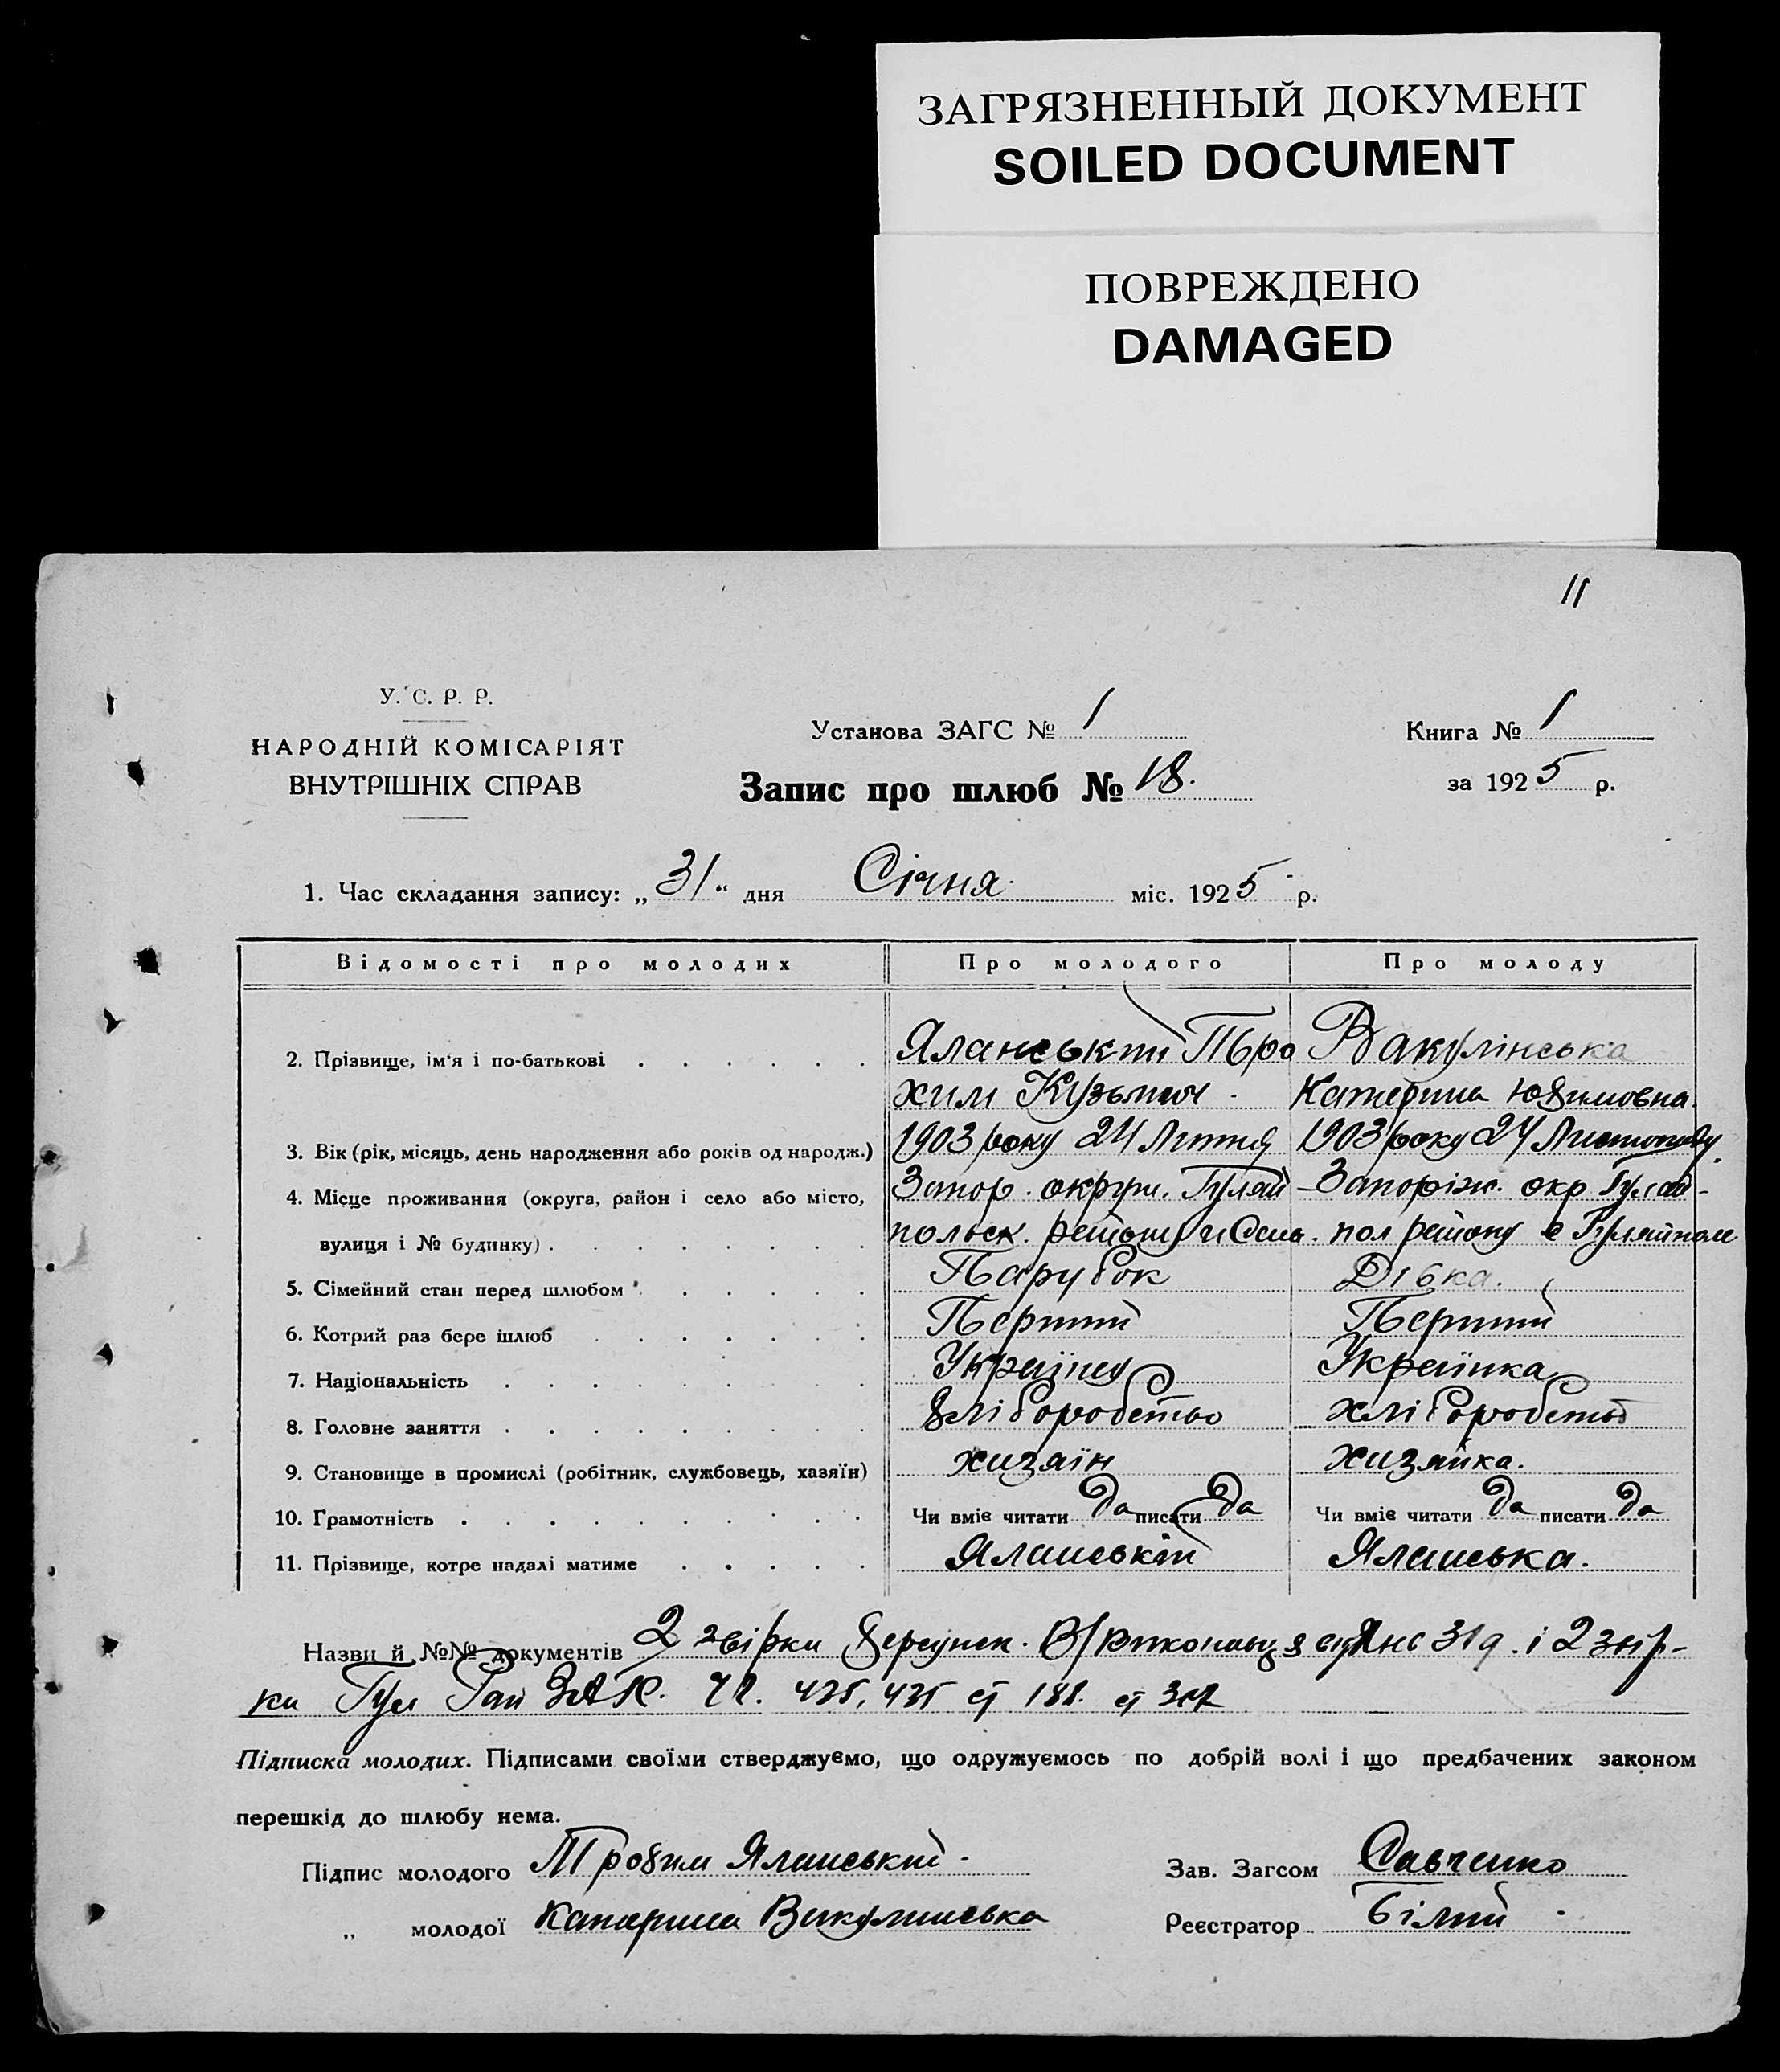 ЗАГРЯЗНЕННЫЙ ДОКУМЕНТ
SOILED DOCUMENT
ПОВРЕЖДЕНО
DAMAGED
11
У. С. Р. Р.
НАРОДНІЙ КОМІСАРІЯТ
ВНУТРІШНІХ СПРАВ
Установа ЗАГС № 1
Книга № 1
Запис про шлюб № 18.
за 1925 р.
1. Час складання запису: „31“ дня Січня міс. 1925 р.
Відомості про молодих Про молодого Про молоду
2. Прізвище, ім'я і по-батькові Яланський Тро Вакулінська
хим Кузьмич Катерина Юхимовна
3. Вік (рік, місяць, день народження або років од народж.) 1903 року 24 Липня 1903 року 24 Листопаду
4. Місце проживання (округа, район і село або місто, Запор. округи. Гуляй Запоріж. окр Гуляй-
вулиця і № будинку) польск. району пол району с Гуляйполе
5. Сімейний стан перед шлюбом Парубок Дівка.
6. Котрий раз бере шлюб Перший Перший
7. Національність Українец Українка
8. Головне заняття хліборобство хліборобство
9. Становище в промислі (робітник, службовець, хазяїн) хазяїн хазяйка.
10. Грамотність Чи вміє читати да писати да Чи вміє читати да писати да
11. Прізвище, котре надалі матиме Яланській Яланська.
Назви й №№ документів 2 звірки і 2 звір-
ки Гул Рай ЗАГС. 425, 435 188.
Підписка молодих. Підписами своїми стверджуємо, що одружуємось по добрій волі і що предбачених законом
перешкід до шлюбу нема.
Підпис молодого Трохим Яланський
Зав. Загсом Савченко
„ молодої Катерина Вакулинська
Реєстратор Білий